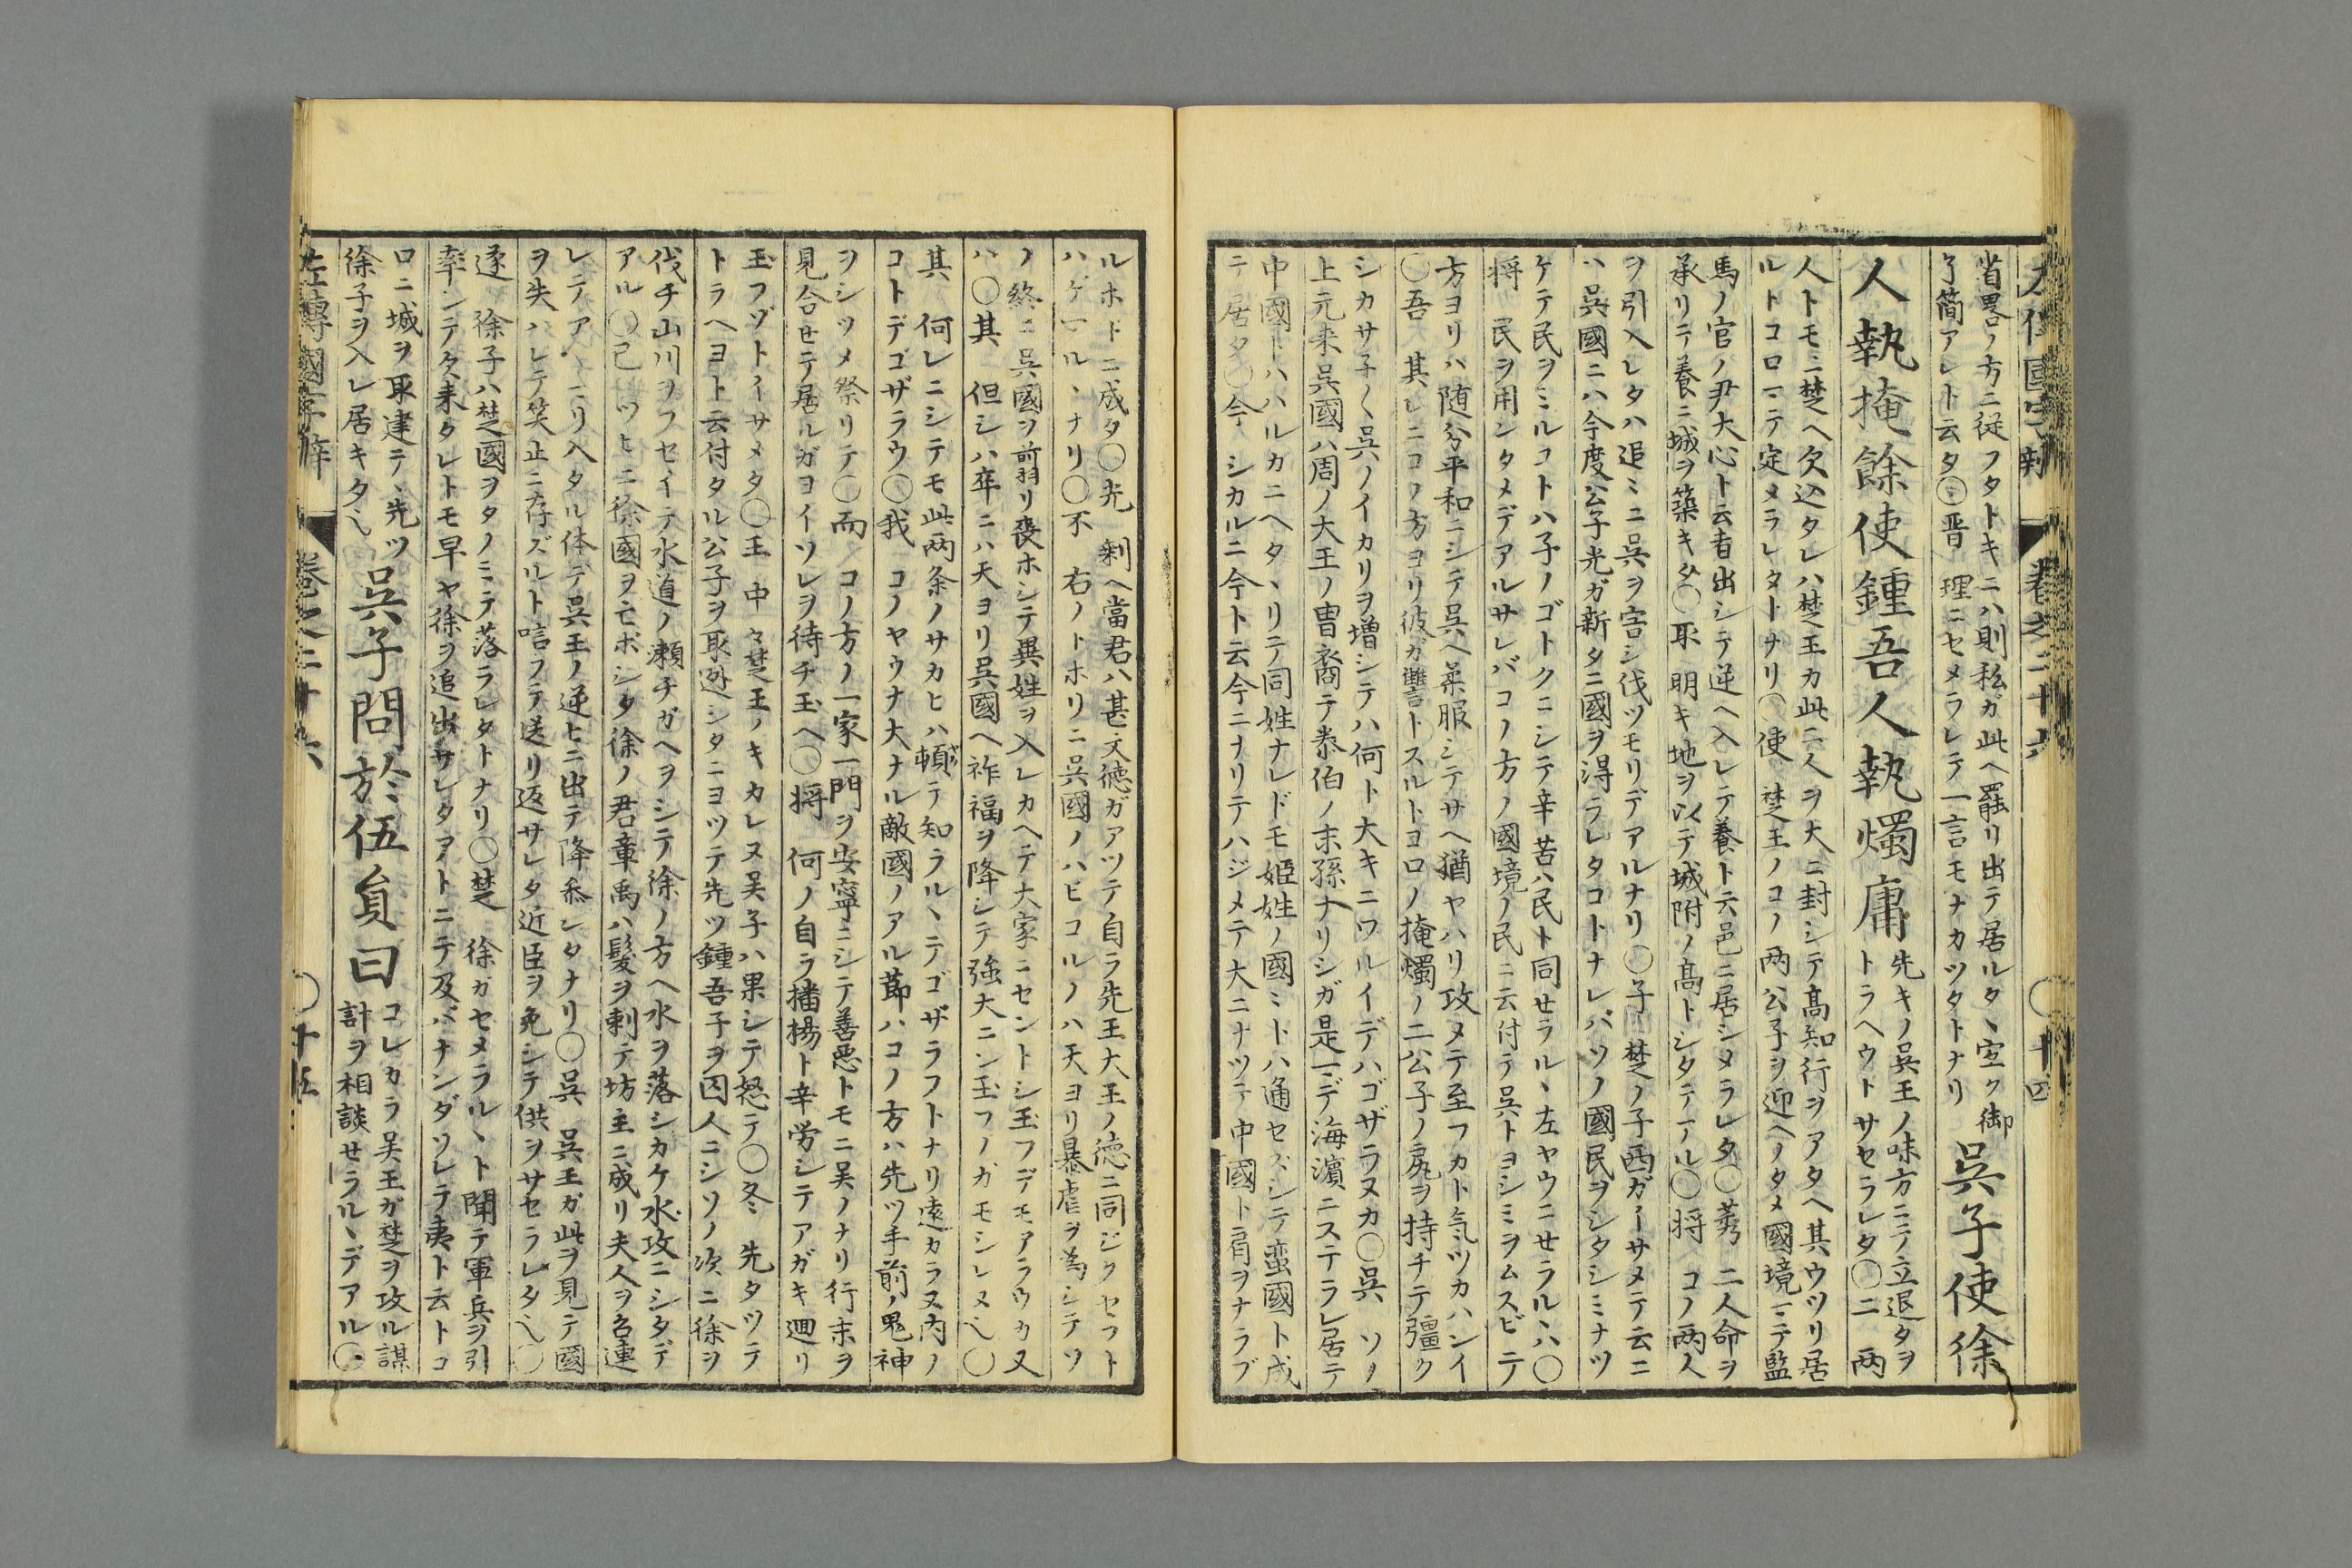 省畧ノ方ニ從フタトキニハ則私ガ此ヘ罷リ出テ居ルタヽ空ク御
了簡アレト云タ〇晋 理ニセメラレテ一言モナカツタトナリ
吳子使徐
人執掩餘使鍾吾人執燭庸
先キノ吳王ノ味方ニテ立退タヲ
トラヘウトサセラレタ〇二 两
人トモニ楚ヘ欠込タレハ楚王カ此二人ヲ大ニ封シテ髙知行ヲアタヘ其ウツリ居
ルトコロマテ定メラレタトナリ〇使 楚王ノコノ两公子ヲ迎ヘノタメ國境マテ監
馬ノ官ノ尹大心ト云者出シテ逆ヘ入レテ養ト云邑ニ居シメラレタ〇莠 二人命ヲ
承リテ養ニ城ヲ築キタ〇取 明キ地ヲ以テ城附ノ髙トシタテアル〇将 コノ两人
ヲ引入レタハ追ミニ吳ヲ害シ伐ツモリデアルナリ〇子 楚ノ子西ガイサメテ云ニ
ハ吳國ニハ今度公子光ガ新タニ國ヲ得ラレタコトナレバソノ國民ヲシタシミナツ
ケテ民ヲミルコトハ子ノゴトクニシテ辛苦ハ民ト同セラルヽ左ヤウニセラルヽハ〇
将 民ヲ用ンタメデアルサレバコノ方ノ國境ノ民ニ云付テ吳トヨシミヲムスビテ
方ヨリハ随分平和ニシテ吳ヘ柔服シテサヘ猶ヤハリ攻メテ至フカト気ツカハンイ
〇吾 其レニコノ方ヨリ彼ガ讐トスルトヨロノ掩燭ノ二公子ノ尻ヲ持チテ彊ク
シカサ子〱吳ノイカリヲ增シテハ何ト大キニワルイデハゴザラヌカ〇吳 ソノ
上元来吳國ハ周ノ大王ノ胄裔テ泰伯ノ末孫ナリシガ是マデ海濵ニステラレ居テ
中國トハハルカニヘタヽリテ同姓ナレドモ姫姓ノ國ミトハ通セズシテ蛮國ト成
テ居タ〇今 シカルニ今ト云今ニナリテハジメテ大ニナツテ中國ト肩ヲナラブ
ルホドニ成タ〇光 剰ヘ當君ハ甚文徳ガアツテ自ラ先王大王ノ徳ニ同ジクセフト
ハゲマルヽナリ〇不 右ノトホリニ吳國ノハビコルノハ天ヨリ暴虐ヲ為シテソ
ノ終ニ吳國ヲ剪リ喪ホシテ異姓ヲ入レカヘテ大家ニセントシ玉フデモアラウカ又
ハ〇其 但シハ卒ニハ天ヨリ吳國ヘ祚福ヲ降シテ強大ニシ玉フノカモシレヌ〇
其 何レニシテモ此两条ノサカヒハ頓テ知ラルヽテゴザラフトナリ遠カラヌ内ノ
コトデゴザラウ〇我 コノヤウナ大ナル敵國ノアル節ハコノ方ハ先ツ手前ノ鬼神
ヲシツメ祭リテ〇而 コノ方ノ一家一門ヲ安寧ニシテ善悪トモニ吴ノナリ行末ヲ
見合せテ居ルガヨイソレヲ待チ玉ヘ〇将 何ノ自ラ播揚ト辛労シテアガキ廻リ
玉フヅトイサメタ〇王 中々楚王ノキカレヌ吴子ハ果シテ怒テ〇冬 先タツテ
トラヘヨト云付タル公子ヲ取迯シタニヨツテ先ツ鍾吾子ヲ囚人ニシソノ次ニ徐ヲ
伐チ山川ヲフセイテ水道ノ瀬チガヘヲシテ徐ノ方ヘ水ヲ落シカケ水攻ニシタデ
アル〇己 ツヒニ徐國ヲ亡ボシタ徐ノ君章禹ハ髪ヲ剃テ坊主ニ成リ夫人ヲ召連
レテアマリ入タル体デ吳王ノ逆ヒニ出テ降参シタナリ〇吳 吳王ガ此ヲ見テ國
ヲ失ハレテ笑止ニ存ズルト唁フテ送リ返サレタ近臣ヲ免シテ供ヲサセラレタ〇
遂 徐子ハ楚國ヲタノミテ落ラレタトナリ〇楚 徐ガセメラルヽト聞テ軍兵ヲ引
率シテ久来タレトモ早ヤ徐ヲ追出サレタアトニテ及バナンダソレテ夷ト云トコ
ロニ城ヲ取建テヽ先ツ
徐子ヲ入レ居キタ
吳子問於伍貟曰
コレカラ吴王ガ楚ヲ攻ル謀
計ヲ相談せラルヽデアル〇
左傳國字辯
卷之二十六
〇十五